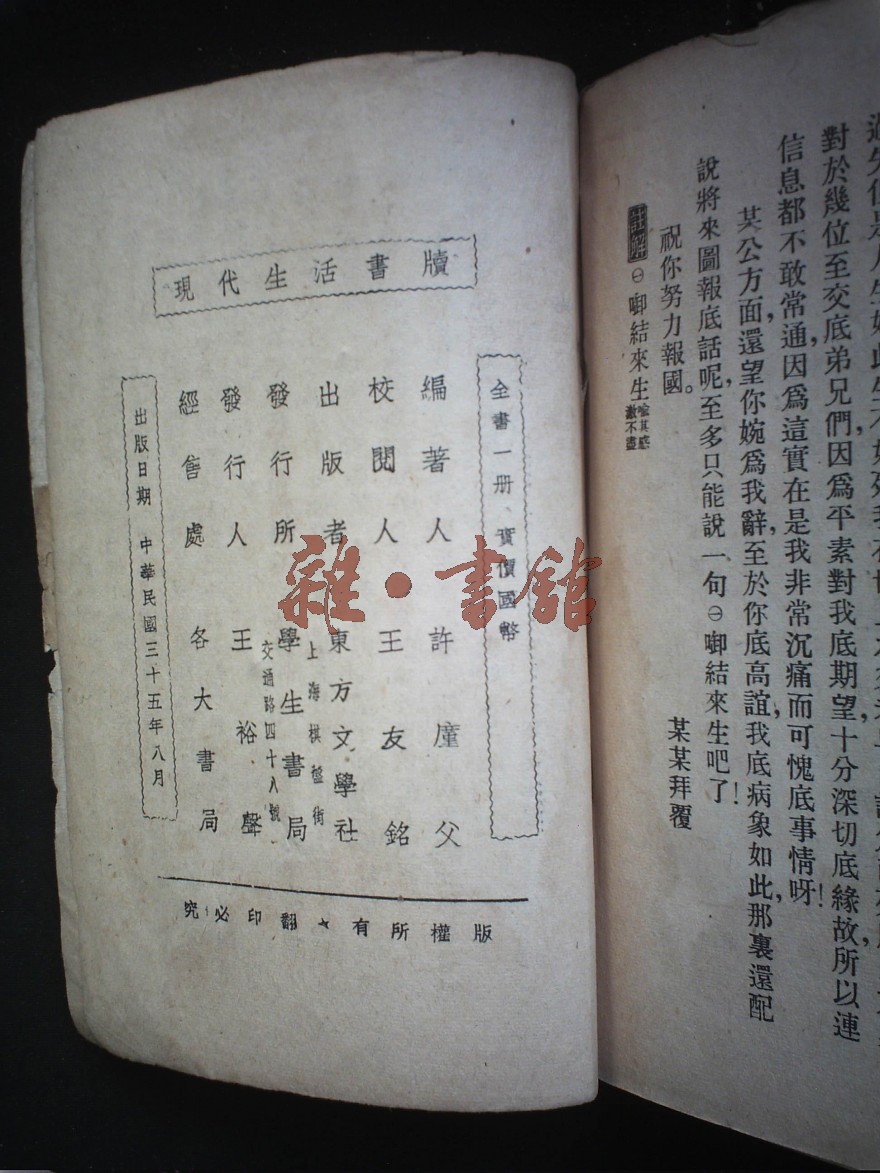 過失但是
對於幾位至交底弟兄們，因爲平素對我底期望，十分深切底緣故，所以連
信息都不敢常通，因爲這實在是我非常沉痛而可愧底事情呀！
某公方面，還望你婉爲我辭，至於你底高誼，我底病象如此，那裏還配
說將來圖報底話呢，至多只能說一句㊀啣結來生吧了！
祝你努力報國。
某某拜覆
註解㊀啣結來生喻其感激不盡
現代生活書牘
全書一册 實價國幣
編著人 許廑父
校閱人 王友銘
出版者 東方文學社
上海棋盤街
發行所 學生書局
交通路四十八號
發行人 王裕
經售處 各大書局
出版日期 中華民國三十五年八月
版權所有★翻印必究
雜·書館